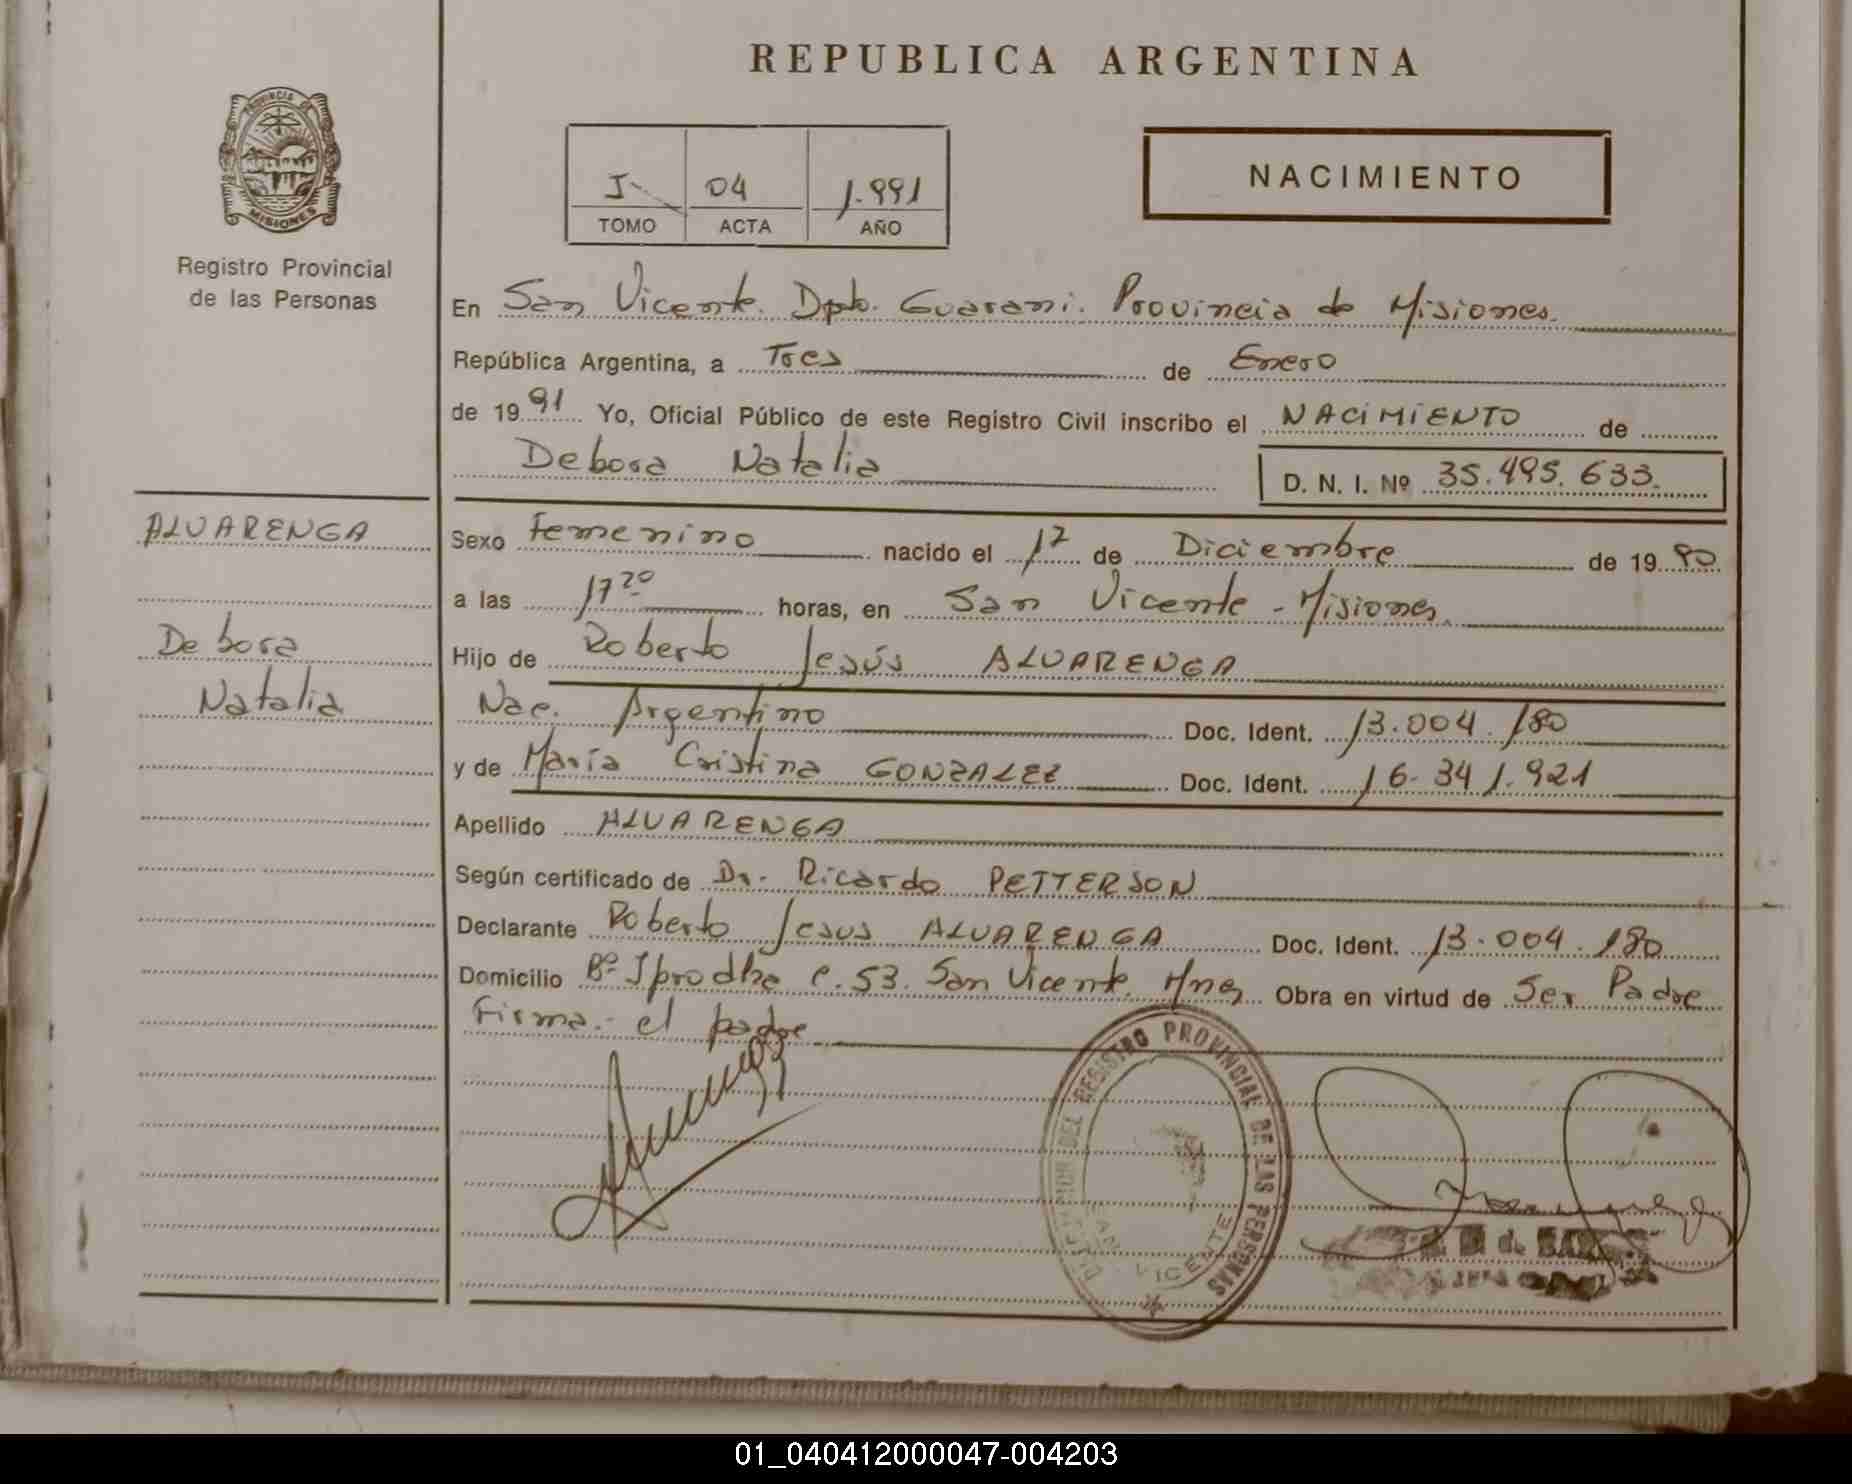 REPUBLICA ARGENTINA
PROVINCIA DE
MISIONES
Registro Provincial
de las Personas
I 04 1.991
TOMO ACTA AÑO
NACIMIENTO
En San Vicente. Dpto. Guarani. Provincia de Misiones.
República Argentina, a Tres de Enero
de 1991 Yo, Oficial Público de este Registro Civil inscribo el NACIMIENTO de
Debora Natalia
D. N. I. Nº 35.495.633.
ALVARENGA
Debora
Natalia
Sexo Femenino nacido el 17 de Diciembre de 1990
a las 17 20 horas, en San Vicente - Misiones.
Hijo de Roberto Jesús ALVARENGA
Nac. Argentino Doc. Ident. 13.004.180
y de María Cristina GONZALEZ Doc. Ident. 16.341.921
Apellido ALVARENGA
Según certificado de Dr. Ricardo PETTERSON
Declarante Roberto Jesus ALVARENGA Doc. Ident. 13.004.180
Domicilio Bº Iprodha C. 53. San Vicente. Mnes Obra en virtud de Ser Padre
Firma.- el padre
DELEGACION DEL REGISTRO PROVINCIAL DE LAS PERSONAS
SAN VICENTE
01_040412000047-004203